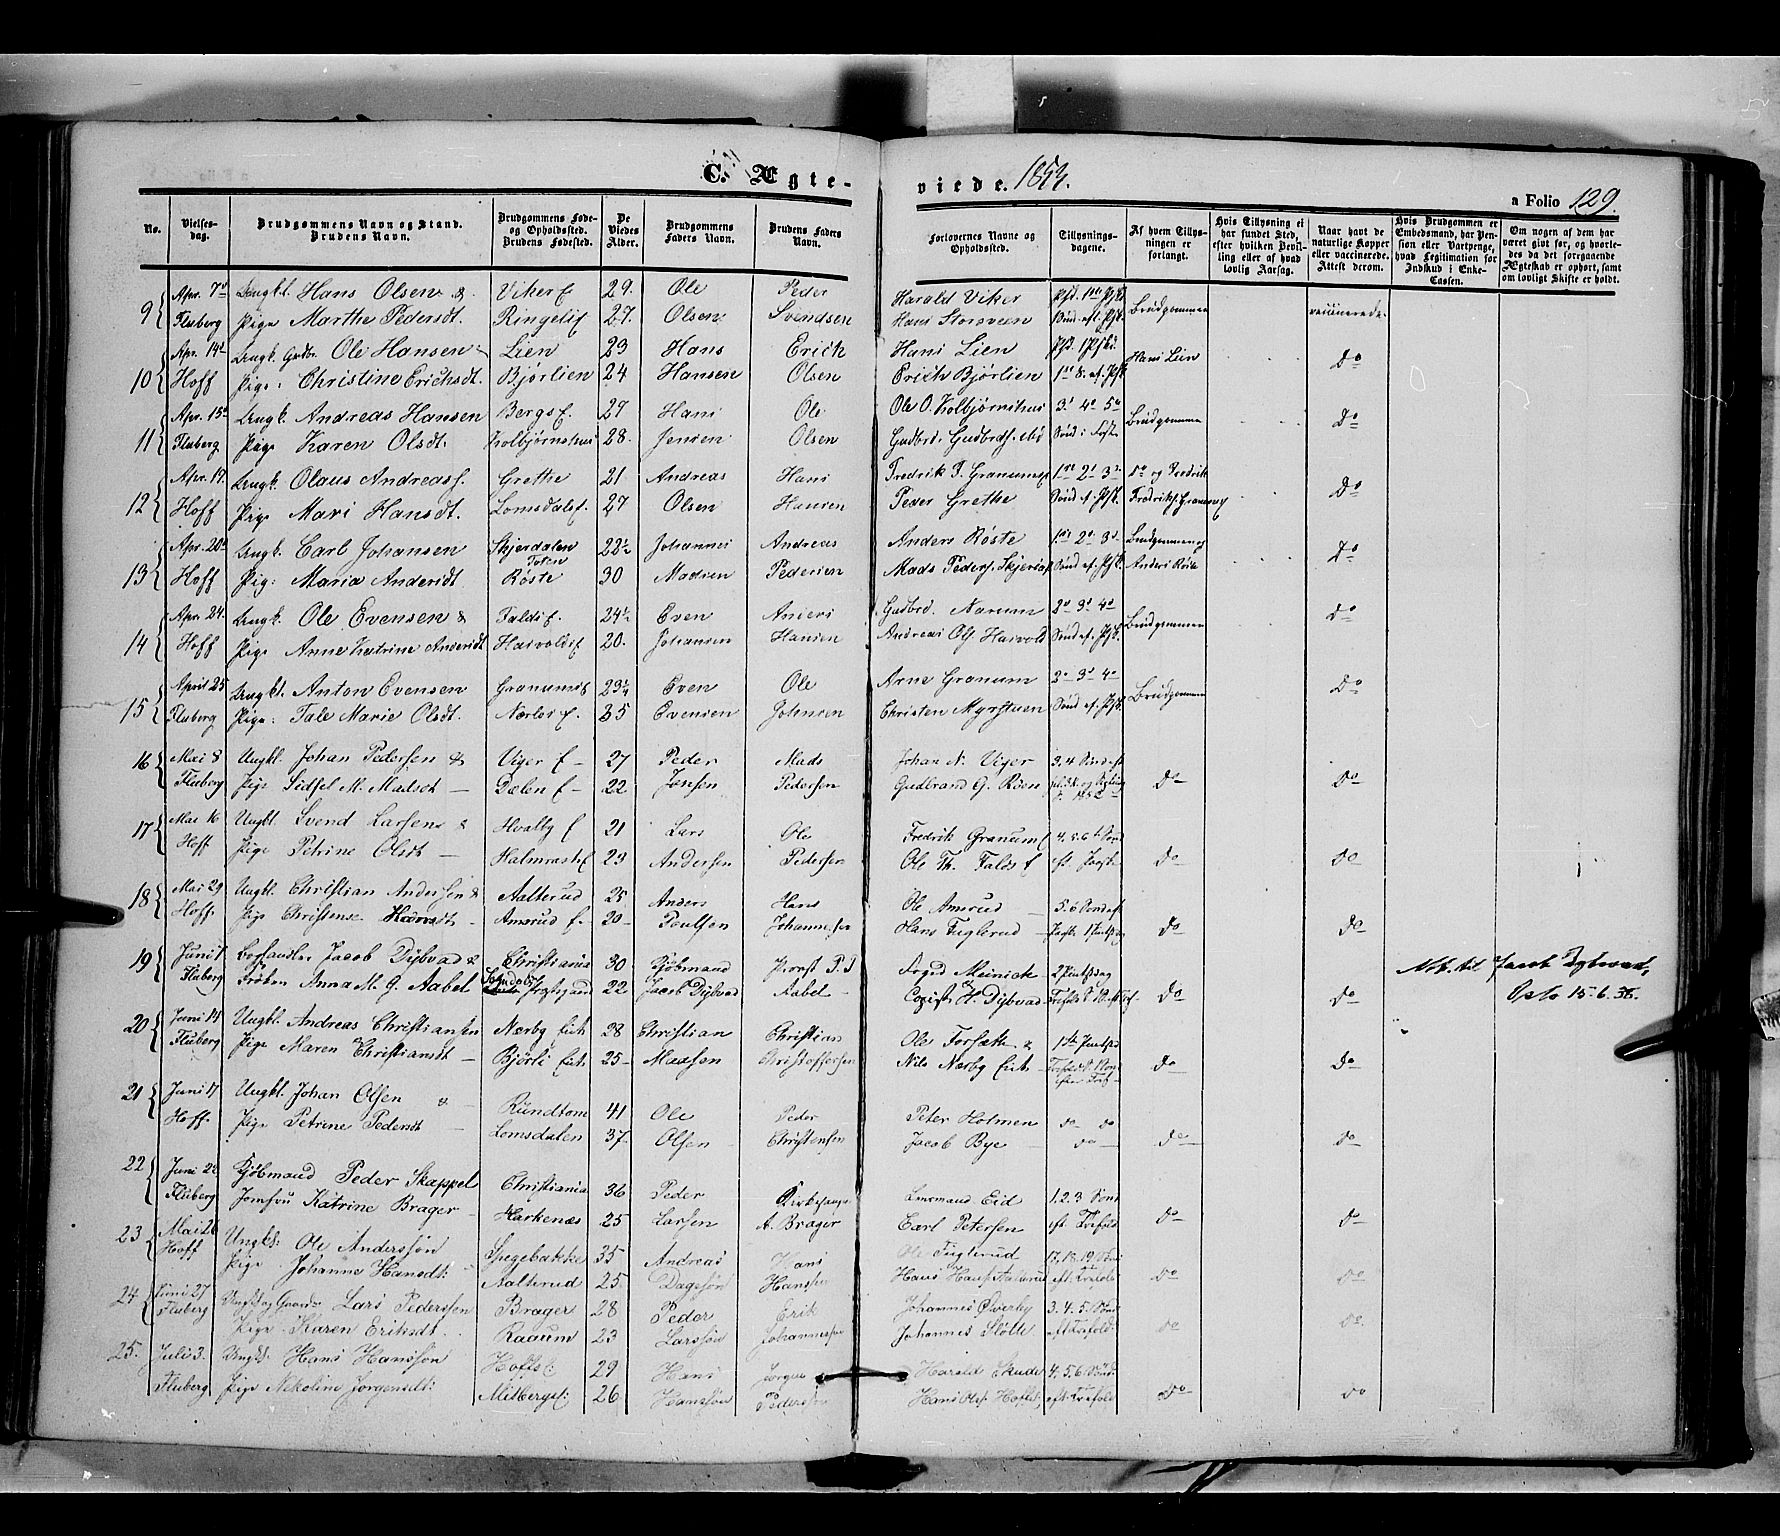 C. Ægte-
viede. 1853.
a Folio 129.
No.
Vielses-
dag.
Brudgommens Navn og Stand.
Brudens Navn.
Brudgommens Føde-
og Opholdssted.
Brudens Fødested.
De
Viedes
Alder.
Brudgommens
Faders Navn.
Brudens Faders
Navn.
Forlovernes Navne og
Opholdssted.
Tillysnings-
dagene.
Af hvem Tillys-
ningen er
forlangt.
Hvis Tillysning ei
har fundet Sted,
efter hvilken Bevil-
ling eller af hvad
lovlig Aarsag.
Naar havt de
naturlige Kopper
eller vaccinerede.
Attest derom.
Hvis Brudgommen er
Embedsmand, har Pen-
sion eller Vartpenge,
hvad Legitimation for
Indskud i Enke-
Cassen.
Om nogen af dem har
været givt før, og hvorle-
des da det forgaaende
Ægteskab er ophørt, samt
om lovligt Skifte er holdt.
9 Apr. 7 Ungkl. Hans Olsen & Viker E 29. Ole Peder Harald Viker
Fluberg Pige Marthe Pedersdt. Ringeli E 27. Olsen Svendsen Hans Storsveen Brudgommen
10 Apr. 14 Ungk. Gudbr. Ole Hansen Lien 23 Hans Erick Hans Lien Hans Lien Do
Hoff Pige: Christine Erichsdt. Bjørlien 24 Hansen Olsen Erich Bjørlien
11 Apr. 15 Ungk. Andreas Hansen Bergs E. 27 Hans Ole Ole O. Kolbjørnshus 3. 4 5 Brudgommen Do
Fluberg Pige Karen Olsdt. Kolbjørnshus 28. Jensen Olsen
12 Apr. 19. Ungk. Olaus Andreass. Grethe 21 Andreas Hans Fredrik F. Granumse 1 2 3 Do og Fredrik Do
Hoff Pige Mari Hansdt. Lomsdalse. 27 Olsen Hansen Peder Grethe
13 Apr. 20 Ungk. Carl Johansen Skjerdalen 22½ Johannes Andreas Anders Røste 1 2 3 Brudgommen og Do
Toten
Hoff Pig: Maria Andersdt Røste 30 Madsen Pedersen Mads Peders. Anders Røste
14 Apr. 24. Ungk. Ole Evensen & Falds E. 24½ Even Anders Gudbrd. Narum 2 3 4 Brudgommen Do
Hoff Pige Anne Katrine Andersdt Haivolds E 20. Johansen Hansen Andreas Ols. Haivold
15 April 25 Ungkl. Anton Evensen Granums E 23½ Even Ole Arne Granum 2 3 4 Brudgommen Do
Fluberg Pige: Tale Marie Olsdt. Nærlos E. 25 Evensen Johnsen Christen Myrstuen
16 Mai 8 Ungkl. Johan Pedersen & Viger E - 27 Peder Mads Johan N. Viger
Fluberg Pige Sidsel M. Madsdt - Dælen E - 22 Jensen Pedersen Gudbrand G. Røen Do Do
17 Mai 16 Ungkl. Svend Larsen & Hvalby E 21 Lars Ole Fredrik Granum E 4. 5. 6
Hoff Pige Petrine Olsdt - Halmrast E 23 Andersen Pedersen Ole Th. Falds E Do Do
18 Mai 29 Ungkl. Christian Andersen & Aalterud 25 Anders Hans Ole Amrud 5. 6
Hoff Pige Christense Hansdt - Amrud E - 20 - Poulsen Johannesen Hans Fuglerud Do Do
19 Juni 1 Jacob Dybvad & Christiania 30 Kjøbmand Provst P. J Foged Meinich
Fluberg Frøken Anna M. G. Aabel Søndre Prestegaard 22 Jacob Dybvad Aabel - H. Dybvad Do Do
Not. til Jacob Dybwad,
Oslo 15.6.38.
20 Juni 14 Ungkl. Andreas Christiansen Nærby Eich 28 Christian Christian Ole Forsæth &
Fluberg Pige Maren Christiansdt - Bjørli Eich 25 - Madsen Christoffersen Nils Nærby Eich Do Do
21 Juni 17 Ungkl. Johan Olsen & - Rundtom 41 Ole Peder Peter Holmen do do
Hoff. Pige Petrine Pedersdt - Lomsdalen 37. Olsen - Christensen Jacob Bye do Do do
22 Juni 22 Kjøbmand Peder Skappel Christiania 36 Peder Kirkesanger Lensmand Eid 1. 2. 3
Fluberg Jomfru Katrine Brager - Harkenæs 25 Larsen A. Brager Carl Petersen Do Do
23 Mai 26 Ungkl: Ole Anderssøn Spegebakke 35 Andreas Hans Ole Fuglerud
Hoff Pige Johanne Hansdt: Aalterud 25 Dagssøn Hanssen Hans Hans. Aalterud Do Do
24 Juni 27 Lars Pederssen Brager 28 Peder Erik Johannes Øverby 3. 4. 5.
Fluberg Pige Karen Eriksdt. Raaum 23 Larssøn Johannessøn Johannes Slotte do Do
25. Juli 3. Ungkl. Hans Hanssøn Hoffs E. 29 Hans Jørgen Harald Skude 4. 5. 6
Fluberg Pige Nekoline Jørgensdt. Mitbergs: 26 Hanssøn Pederssøn Hans Ols: Hoffs E, Do Do